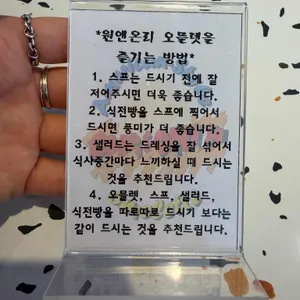 *원앤온리 오믈렛을
즐기는 방법*
1. 스프는 드시기 전에 잘
저어주시면 더욱 좋습니다.
2. 식전빵을 스프에 찍어서
드시면 풍미가 더 좋습니다.
3. 샐러드는 드레싱을 잘 섞어서
식사중간마다 느끼하실 때 드시는
것을 추천드립니다.
4. 오믈렛, 스프, 샐러드,
식전빵을 따로따로 드시기 보다는
같이 드시는 것을 추천드립니다.